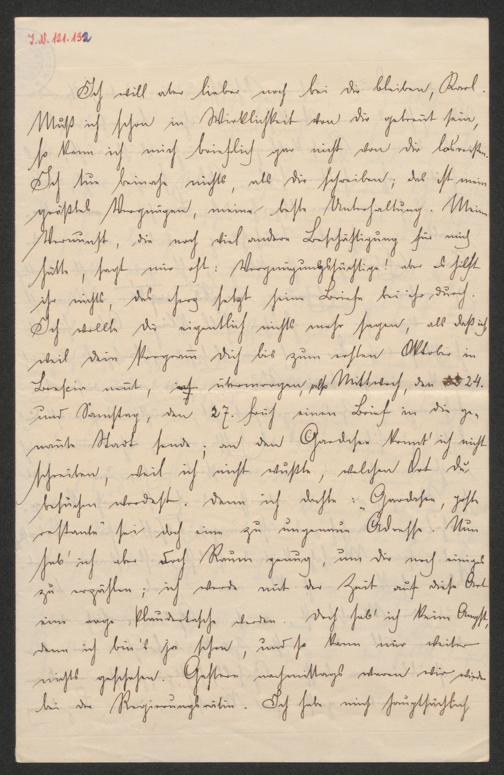 I.N. 121.132
Ich will aber lieber noch bei dir bleiben, Karl.
Muß ich schon in Wirklichkeit von dir getrennt sein,
so kann ich mich brieflich gar nicht von dir losreißen.
Ich tue beinahe nichts, als dir schreiben; das ist mein
größtes Vergnügen, meine beste Unterhaltung. Meine
Vernunft, die noch viel andere Beschäftigung für mich
hätte, sagt mir oft: Vergnügungssüchtige! aber es hilft
ihr nichts, das Herz setzt seine Briefe bei ihr durch.
Ich wollte dir eigentlich nichts mehr sagen, als daß ich
weil dein Programm dich bis zum ersten Oktober in
Brescia nennt, übermorgen, also Mittwoch, den 24.
und Samstag, den 27. früh einen Brief in die ge-
nannte Stadt sende; an den Gardasee konnt' ich nicht
schreiben, weil ich nicht wußte, welchen Ort du
besuchen werdest. Denn ich dachte: "Gardasee, poste
restante" sei doch eine zu ungenaue Adresse. Nun
hab' ich aber doch Raum genug, um dir noch einiges
zu erzählen; ich werde mit der Zeit auf diese Art
eine arge Plaudertasche werden. Doch hab' ich keine Angst,
denn ich bin's ja schon, und so kann mir weiter
nichts geschehen. Gestern nachmittags waren wir wieder
bei der Regierungsrätin. Ich habe mich hauptsächlich